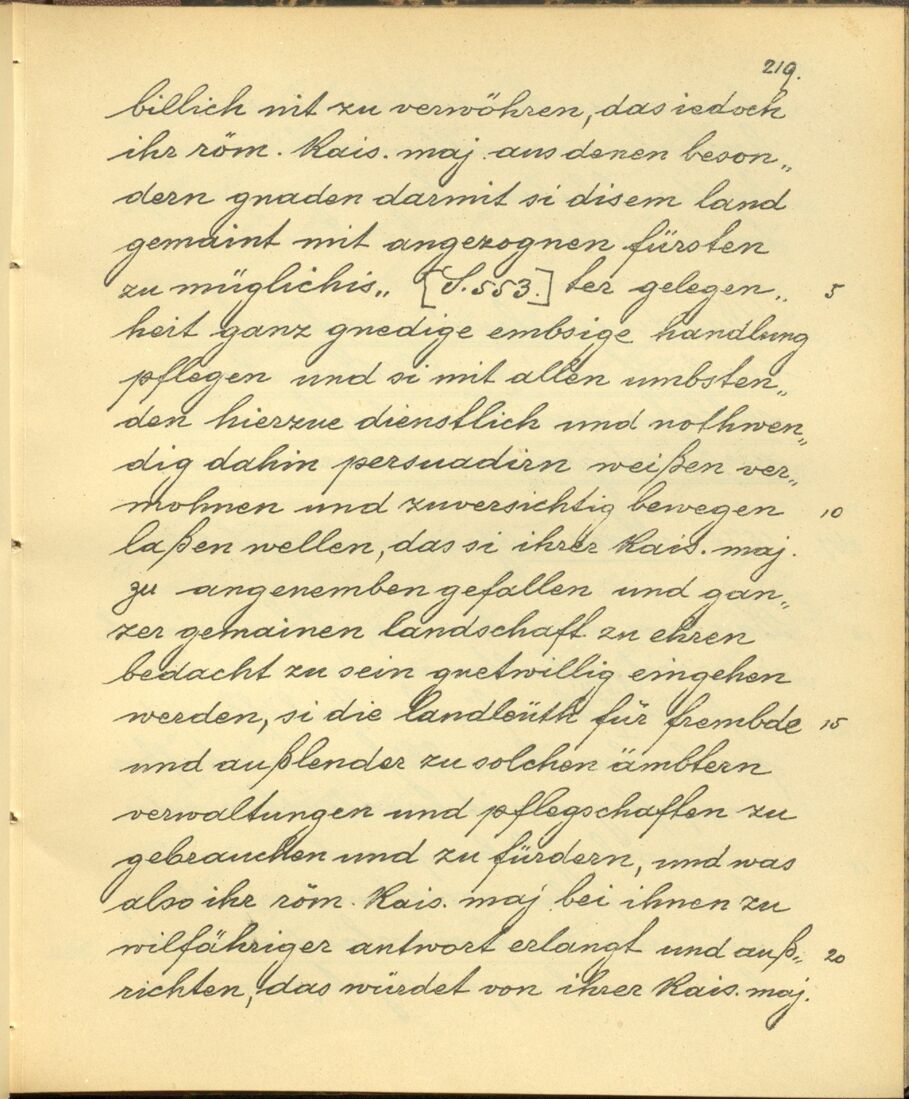 219.
billich nit zu verwöhren, das iedoch
ihr röm. Kais. maj. aus denen beson„
dern gnaden darmit si disem land
gemaint mit angezognen fürsten
zu müglichis„ [S. 553.] ter gelegen„ 5
heit ganz gnedige embsige handlung
pflegen und si mit allen umbsten„
den hierzue dienstlich und nothwen„
dig dahin persuadirn weißen ver„
mohnen und zuversichtig bewegen 10
laßen wellen, das si ihrer Kais. maj.
zu angenemben gefallen und gan„
zer gemainen landschaft zu ehren
bedacht zu sein guetwillig eingehen
werden, si die landleüth für frembde 15
und außlender zu solchen ämbtern
verwaltungen und pflegschaften zu
gebrauchen und zu fürdern, und was
also ihr röm. Kais. maj bei ihnen zu
wilfähriger antwort erlangt und auß„ 20
richten, das würdet von ihrer Kais. maj.